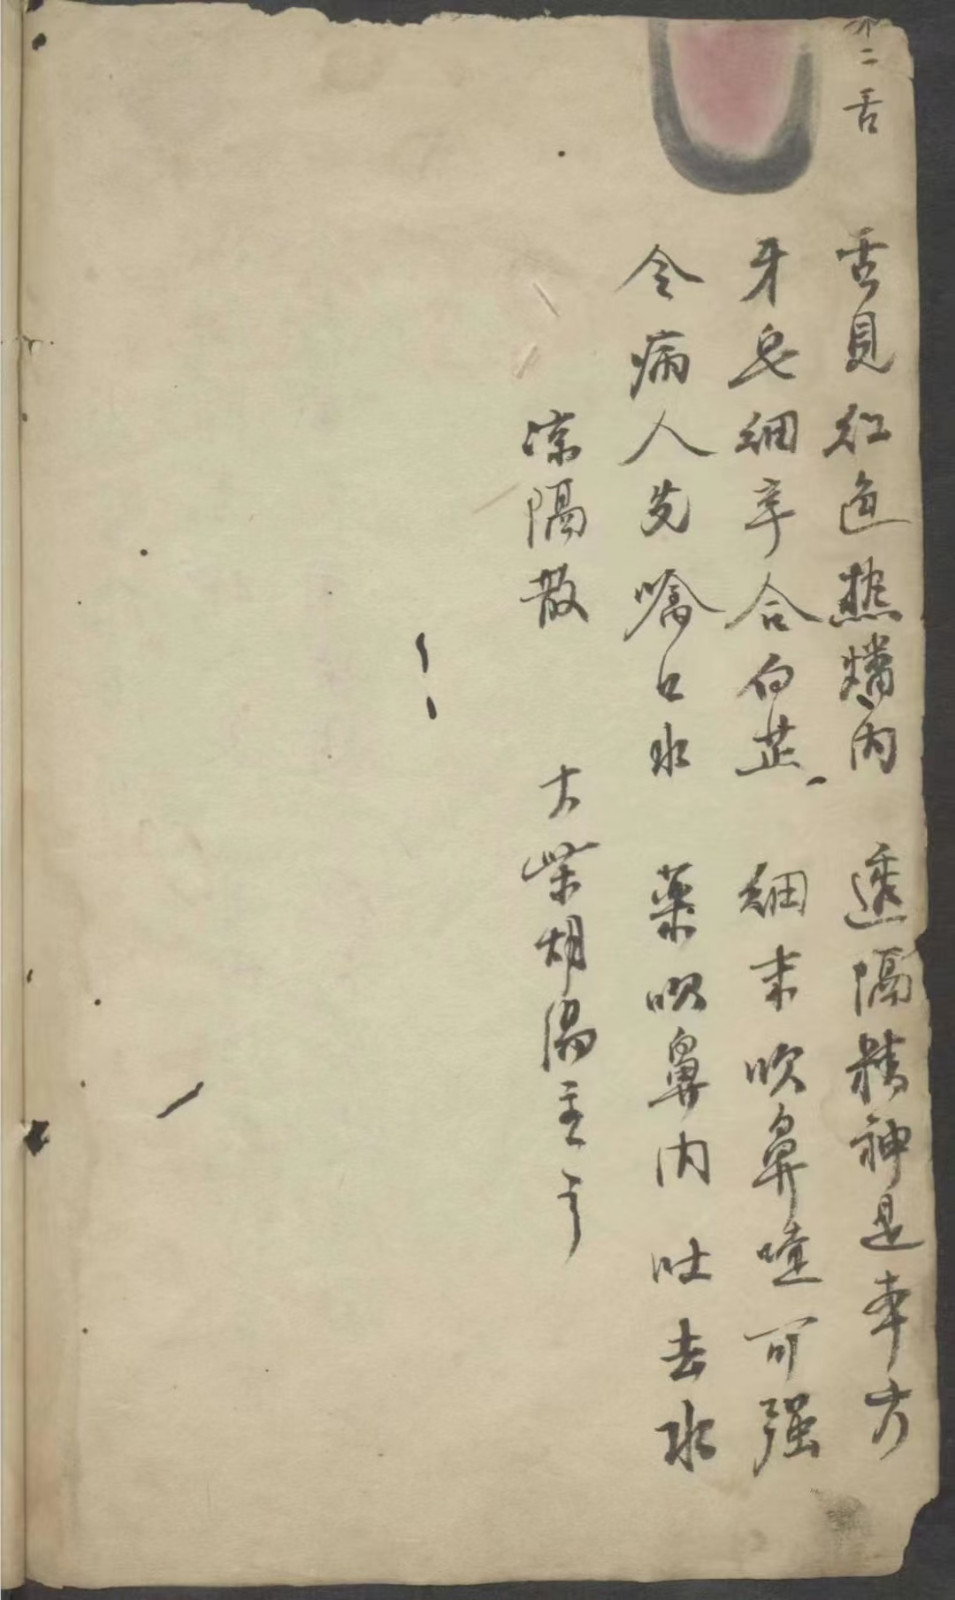 第二舌
舌見红色热燔内　透隔精神是本方
牙皂细辛合白芷　细末吹鼻嚏可强
令病人先噙口水　药吹鼻内　吐去水
凉隔散　大柴胡湯主之